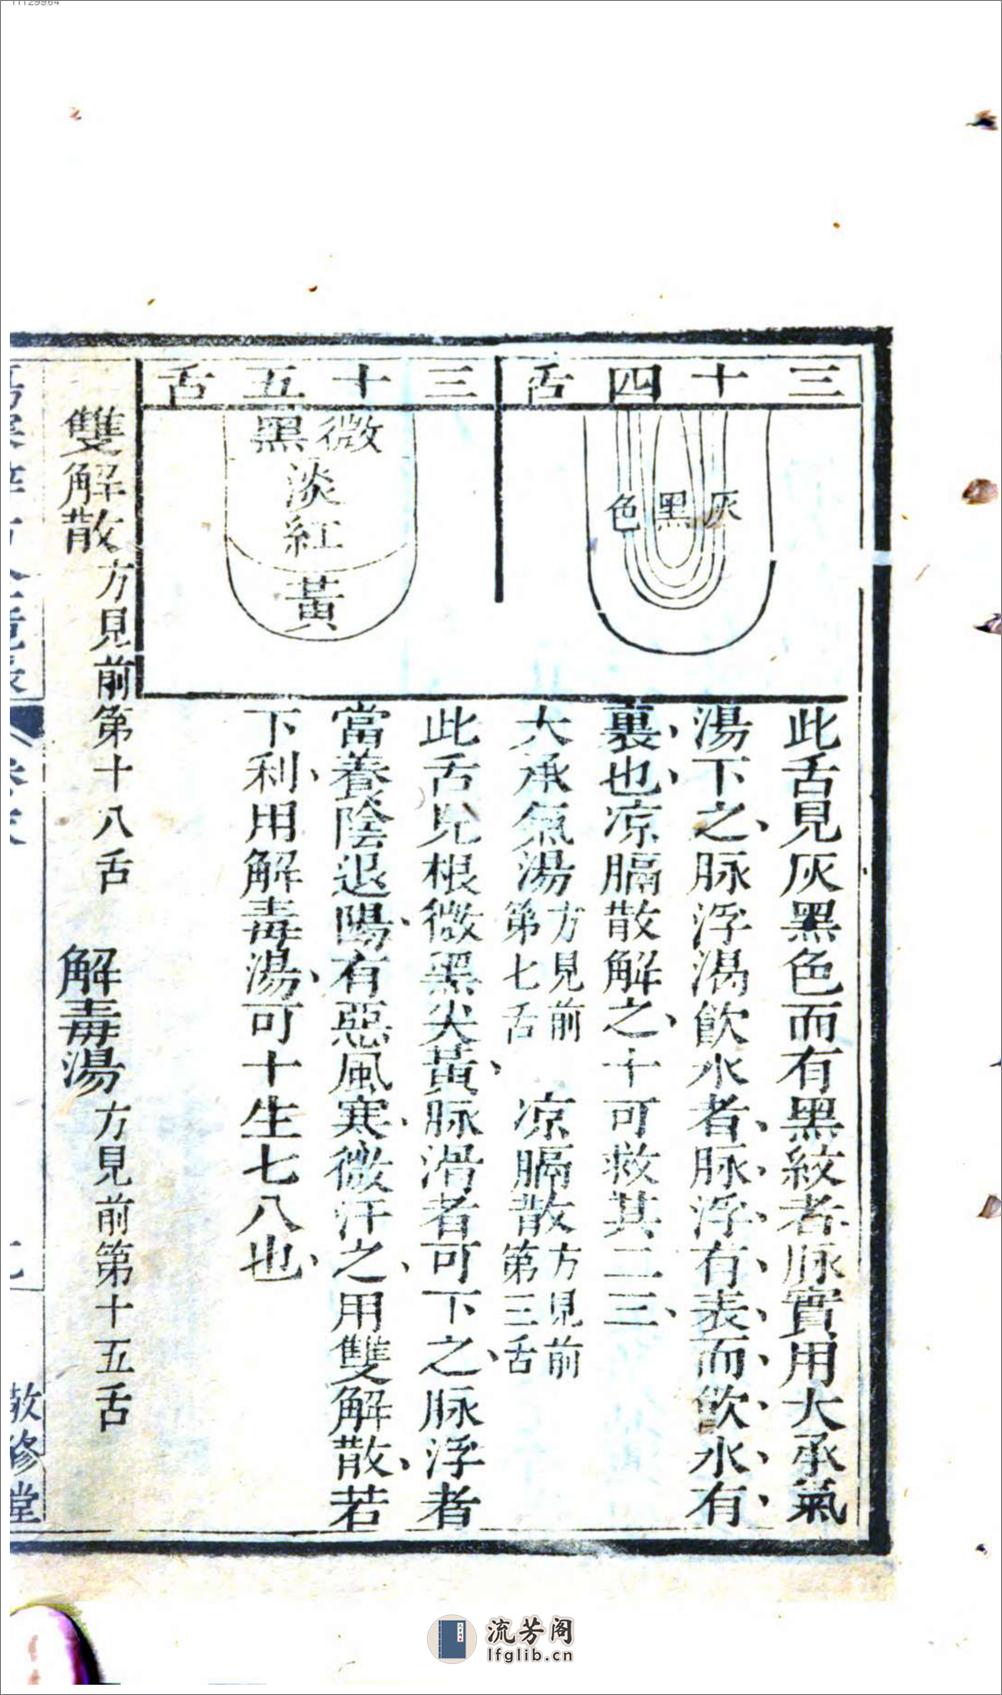 三十四舌
灰黑色
此舌見灰黑色而有黑紋者脉實用大承氣
湯下之脉浮渴飲水者脉浮有表而飲水有
裏也凉膈散解之十可救其二三
大承氣湯方見前第七舌 凉膈散方見前第三舌
三十五舌
微黑
淡紅
黃
此舌見根微黑尖黃脉滑者可下之脉浮者
當養陰退陽有惡風寒微汗之用雙解散若
下利用解毒湯可十生七八也
雙解散方見前第十八舌 解毒湯方見前第十五舌
敬修堂
流芳阁
lfglib.cn